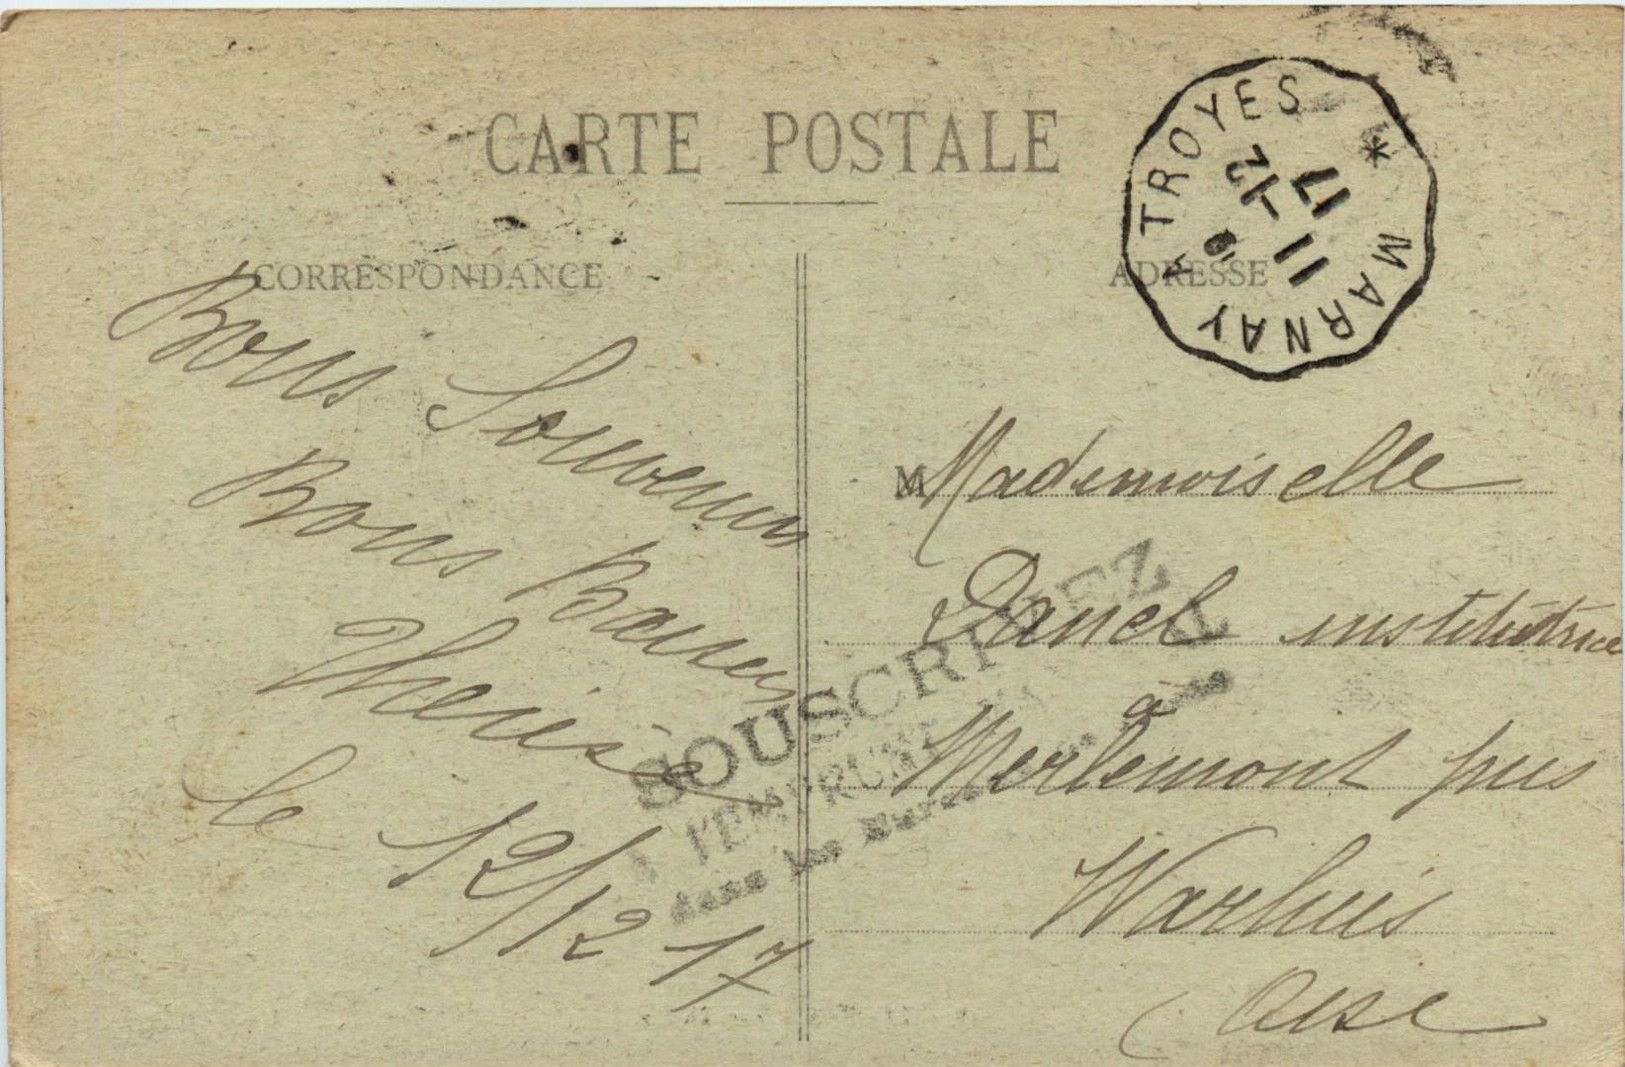 CARTE POSTALE
CORRESPONDANCE
ADRESSE
TROYES * MARNAY A
11 - 12
17
Bons Souvenirs
Bons Baisers
Thérèse
le 12/12 17
M Mademoiselle
Danel institutrice
à
Merlemont près
Warluis
Oise
SOUSCRIVEZ
à l'EMPRUNT
dans les Bureaux de